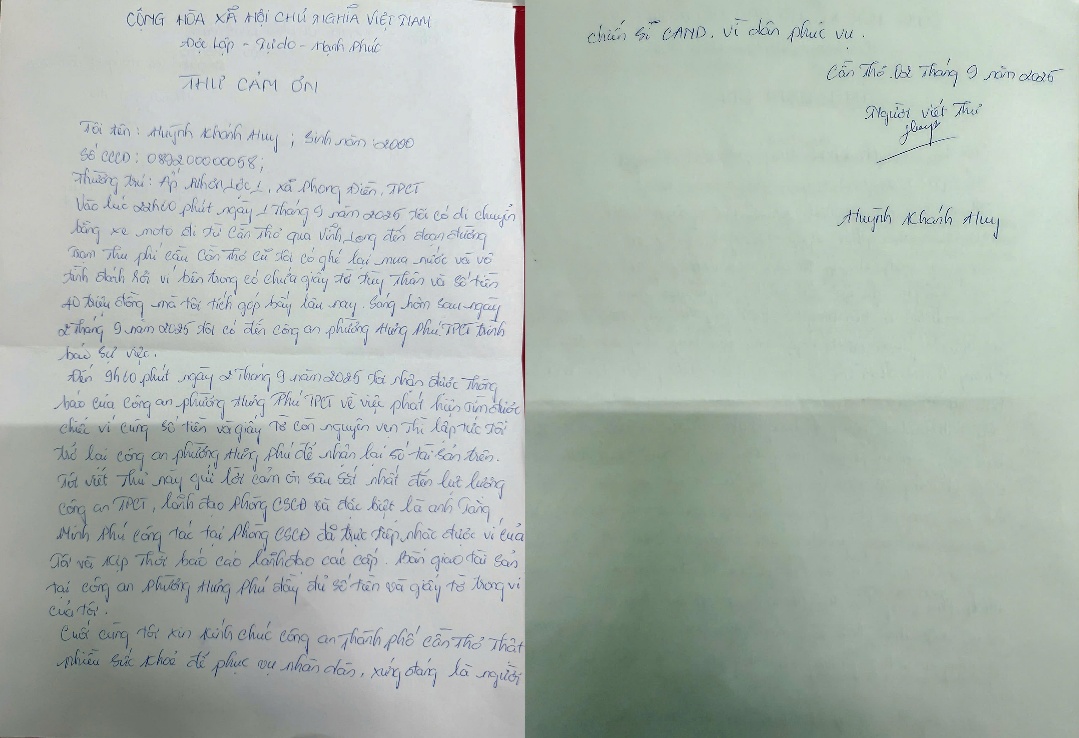 CỘNG HÒA XÃ HỘI CHỦ NGHĨA VIỆT NAM
Độc Lập - Tự do - Hạnh Phúc
THƯ CẢM ƠN
Tôi tên : Huỳnh Khánh Huy ; Sinh năm 2000
Số CCCD : 092200000058;
Thường trú : Ấp Nhơn Lộc 1, xã Phong Điền, TPCT
Vào lúc 22h40 phút ngày 1 Tháng 9 năm 2025 Tôi có di chuyển
bằng xe moto đi từ Cần Thơ qua Vĩnh Long đến đoạn đường
Trạm Thu phí cầu Cần Thơ cũ Tôi có ghé lại mua nước và vô
tình đánh rơi ví bên trong có chứa giấy tờ tùy Thân và số tiền
40 triệu đồng mà tôi tích góp bấy lâu nay. Sáng hôm sau ngày
2 Tháng 9 năm 2025 Tôi có đến công an phường Hưng Phú TPCT trình
báo sự việc.
Đến 9h40 phút ngày 2 Tháng 9 năm 2025 Tôi nhận được Thông
báo của công an phường Hưng Phú TPCT về việc phát hiện tìm được
chiếc ví cùng số tiền và giấy Tờ còn nguyên vẹn Thì lập tức Tôi
trở lại công an phường Hưng phú để nhận lại số tài sản trên.
Tôi viết Thư này gửi lời cảm ơn sâu sắt nhất đến lực lượng
công an TPCT, lãnh đạo Phòng CSCĐ và đặc biệt là anh Tăng
Minh Phú công tác tại Phòng CSCĐ đã trực tiếp nhặt được ví của
Tôi và Kịp Thời báo cáo lãnh đạo các cấp. Bàn giao tài sản
tại công an Phường Hưng Phú đầy đủ số tiền và giấy tờ trong ví
của tôi.
Cuối cùng tôi xin Kính chúc công an Thành phố Cần Thơ Thật
nhiều sức Khoẻ để phục vụ nhân dân, xứng đáng là người
chiến sĩ CAND. vì dân phục vụ.
Cần Thơ, 02 Tháng 9 năm 2025
Người viết Thư
Huy
Huỳnh Khánh Huy